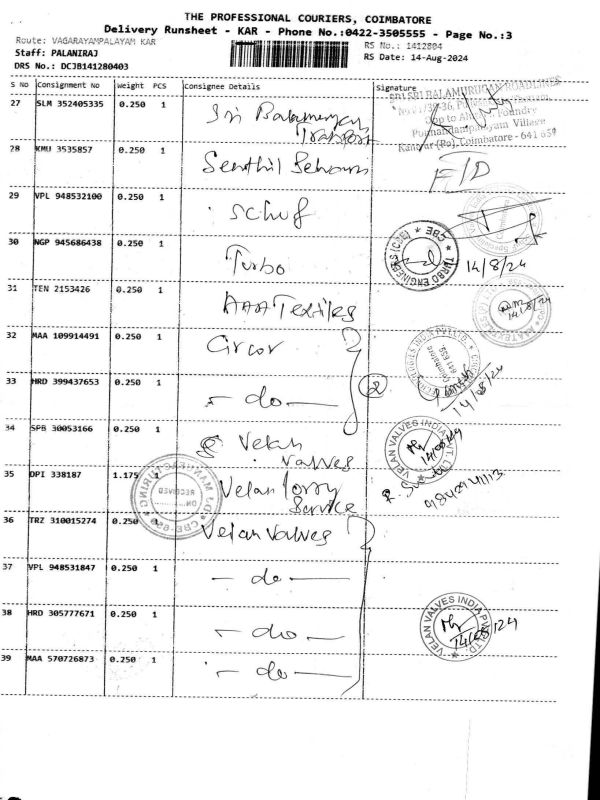 THE PROFESSIONAL COURIERS, COIMBATORE
Delivery Runsheet - KAR - Phone No.:0422-3505555 - Page No.:3
Route: VAGARAYAMPALAYAM KAR
RS No.: 1412804
Staff: PALANIRAJ
RS Date: 14-Aug-2024
DRS No.: DCJB141280403
S No Consignment No Weight PCS Consignee Details Signature
27 SLM 352405335 0.250 1 Sri Balamurugan Transport
SRI SRI BALAMURUGAN ROADLINES
Opp to Foundre
Village
Kaniyur (Po), Coimbatore - 641 659
28 KMU 3535857 0.250 1 Senthil
29 VPL 948532100 0.250 1 Schuf
30 NGP 945686438 0.250 1 Turbo
TURBO ENGINEERS (CBE) * CBE *
14/8/24
31 TEN 2153426 0.250 1 AAA Textiles
14/8/24
32 MAA 109914491 0.250 1 Circor
INDIA PVT LTD.
Coimbatore
641 659.
33 HRD 399437653 0.250 1 - do -
2
14/08/24
34 SPB 30053166 0.250 1 Velan Valves
VELAN VALVES INDIA PVT. LTD.
14/08/24
35 DPI 338187 1.175 1 Velan lorry Service
RECEIVED
ON
36 TRZ 310015274 0.250 Velan Valves
37 VPL 948531847 0.250 1 - do -
38 HRD 305777671 0.250 1 - do -
VELAN VALVES INDIA PVT. LTD.
14/08/24
39 MAA 570726873 0.250 1 - do -